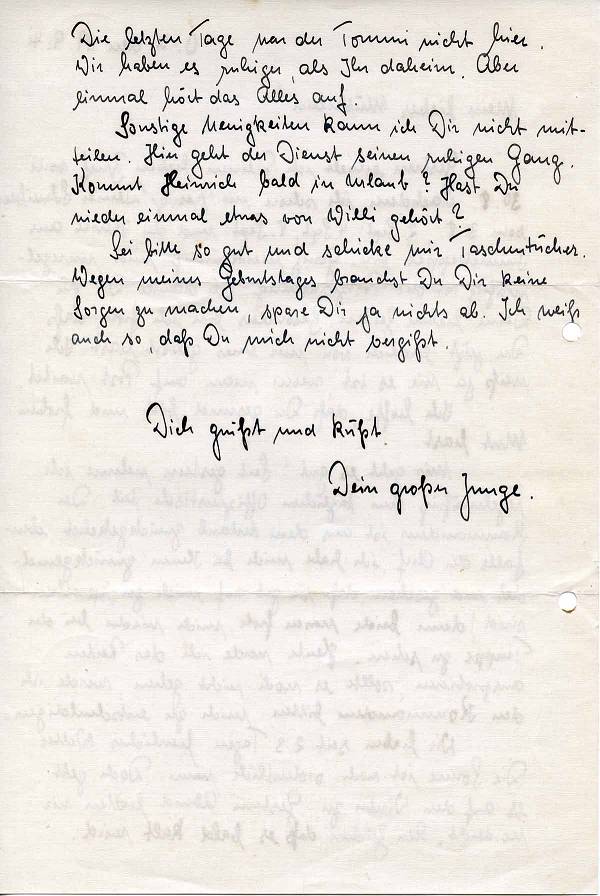 Die letzten Tage war der Tommi nicht hier.
Wir haben es ruhiger, als Ihr daheim. Aber
einmal hört das Alles auf.
Sonstige Neuigkeiten kann ich Dir nicht mit-
teilen. Hier geht der Dienst seinen ruhigen Gang.
Kommt Heinrich bald in Urlaub? Hast Du
wieder einmal etwas von Willi gehört?
Sei bitte so gut und schicke mir Taschentücher.
Wegen meines Geburtstages brauchst Du Dir keine
Sorgen zu machen, spare Dir ja nichts ab. Ich weiß
auch so, daß Du mich nicht vergißt.
Dich grüßt und küßt
Dein großer Junge.